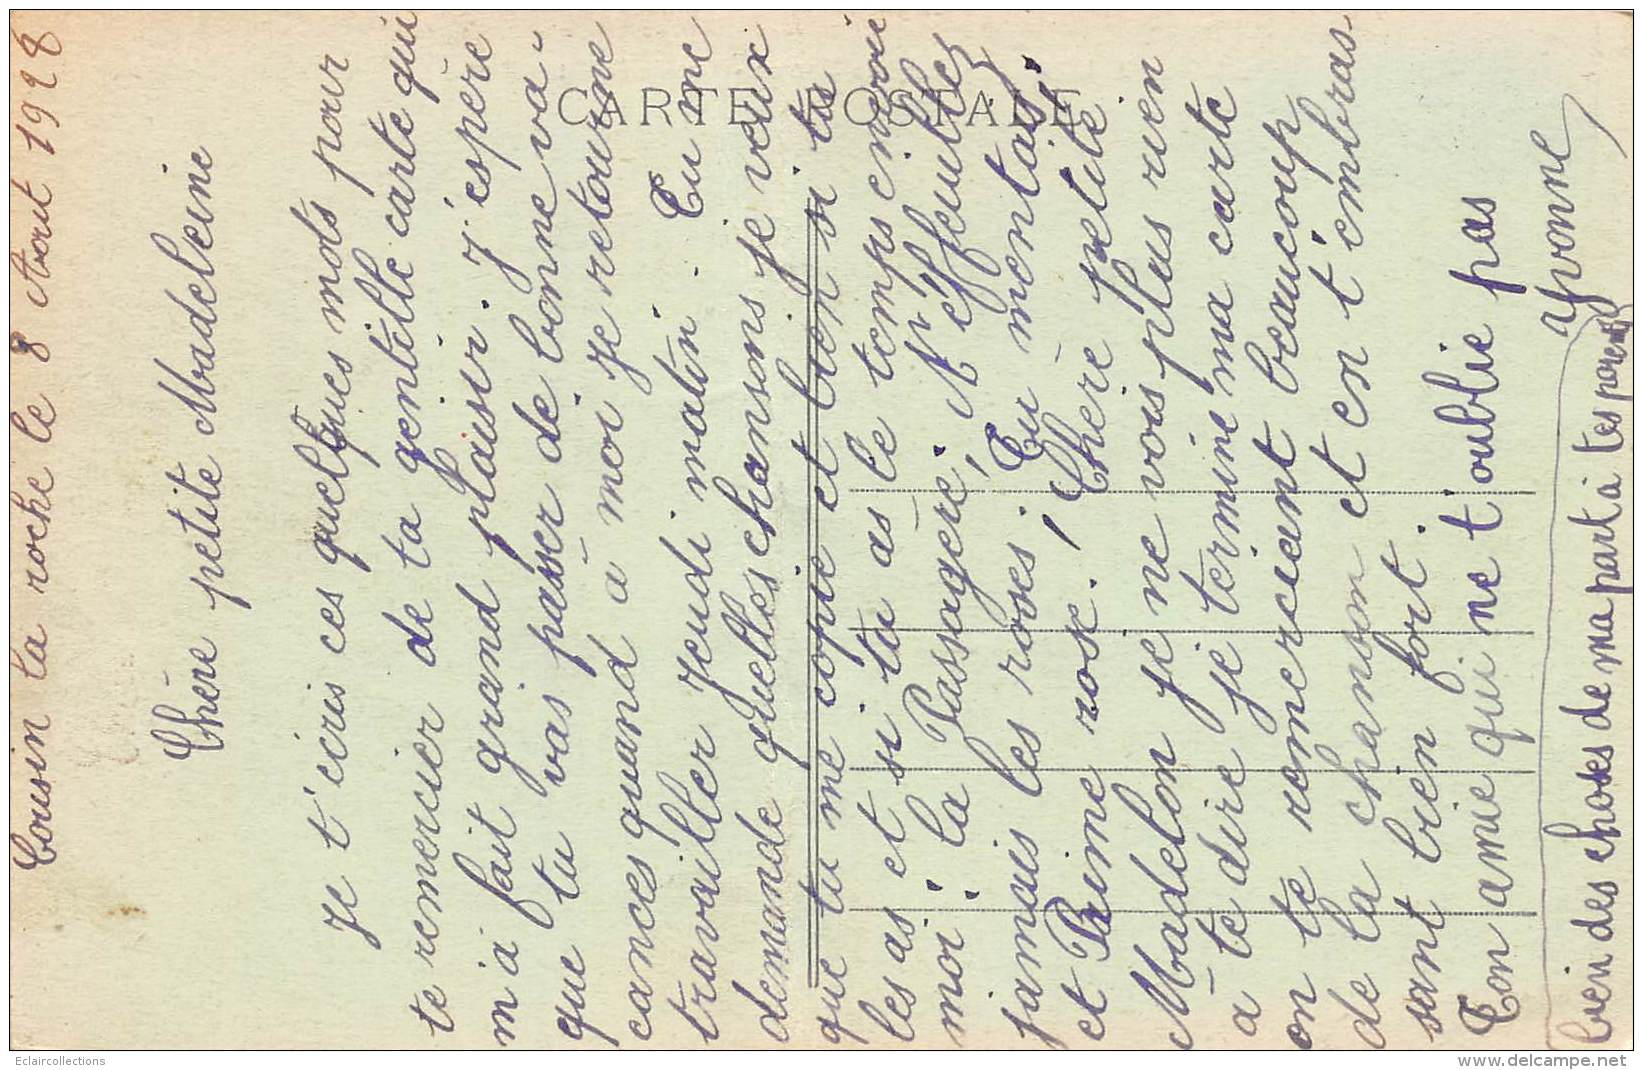 Cousin la roche le 8 Aout 1928
Chère petite Madeleine
Je t'écris ces quelques mots pour
te remercier de ta gentille carte qui
m'a fait grand plaisir. J'espère
que tu vas passer de bonne va-
cances quand à moi je retourne
travailler Jeudi matin. Tu me
demande quelles chansons je veux
que tu me copie et bien si tu
les as et si tu as le temps envoie
moi : la Passagère ; N'effeuillez
jamais les roses ; Tu mentais ;
et Prime rose. ; Chère petite
Madelon je ne vois plus rien
à te dire je termine ma carte
en te remerciant beaucoup
de la chanson et en t'embras
sant bien fort.
Ton amie qui ne t'oublie pas
Yvonne
bien des choses de ma part à tes parents
CARTE POSTALE
Eclaircollections
www.delcampe.net